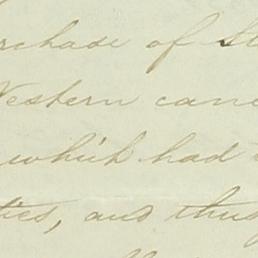 rchase of St
Western cane
which had
ties, and thus